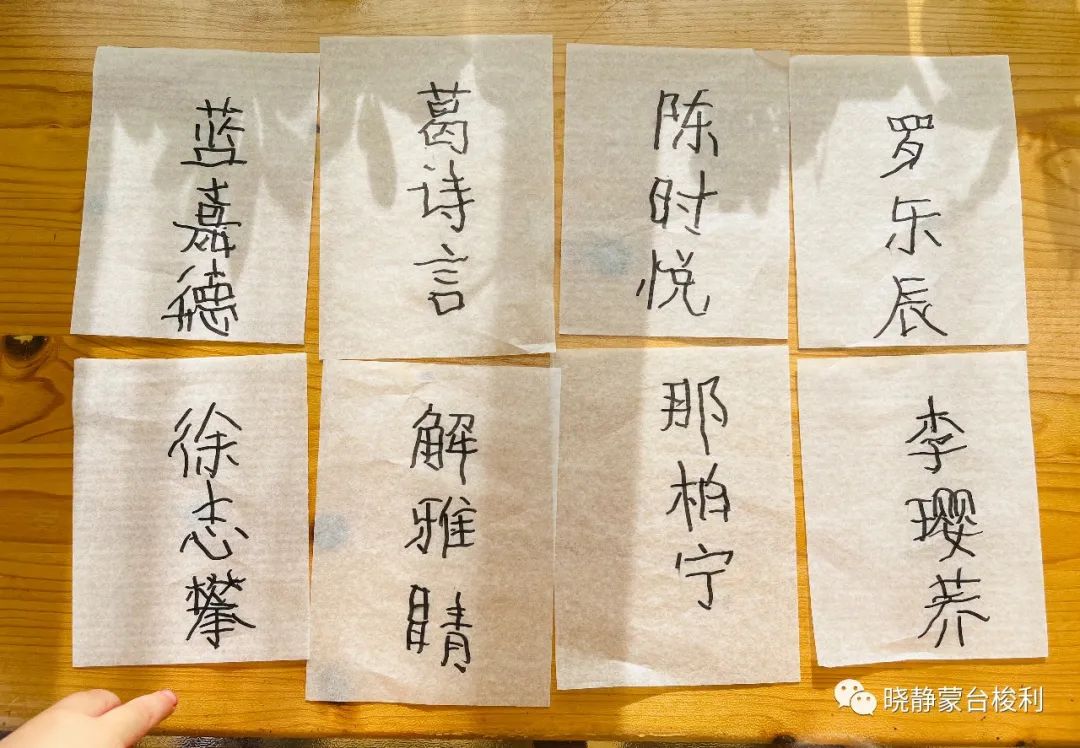 蓝嘉德
葛诗言
陈时悦
罗乐辰
徐志攀
解雅晴
那柏宁
李璎荞
晓静蒙台梭利